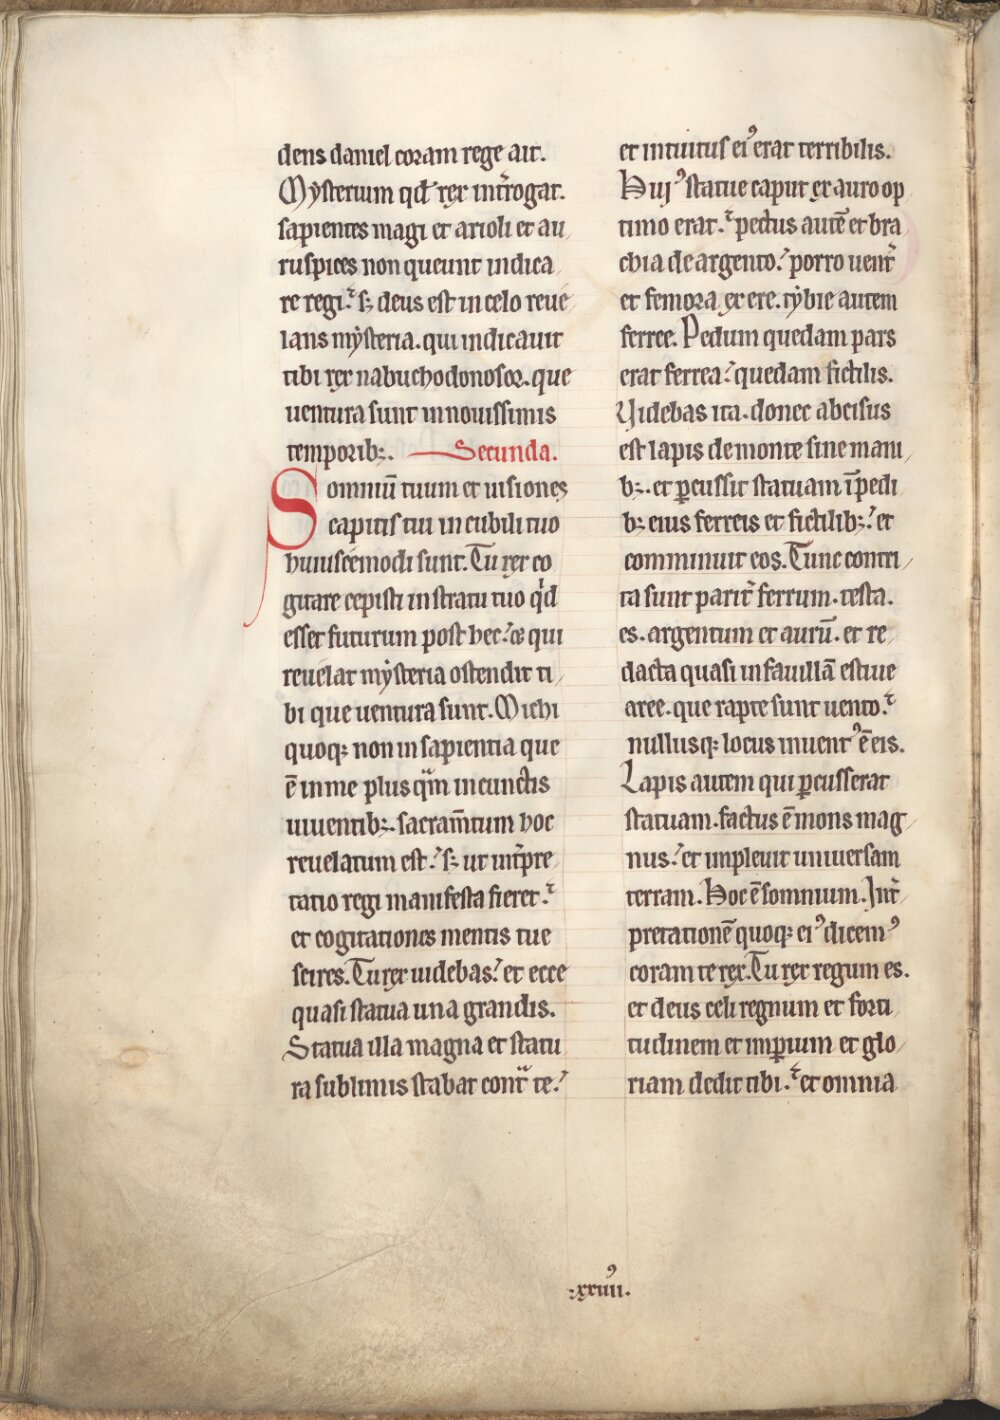 dens daniel coram rege ait.
Mysterium qđ rex int̄rogat.
sapientes magi et arioli et au/
ruspices non queunt indica/
re regi. sꝫ deus est in celo reue/
lans mysteria. qui indicauit
tibi rex nabuchodonosor. que
uentura sunt in nouissimis
temporibꝫ. Secunda.
Somniū tuum et uisiones
capitis tui in cubili tuo
huiuscemodi sunt. Tu rex co
gitare cepisti in stratu tuo qͥd
esset futurum post hec. ⁊ qui
reuelat mysteria ostendit ti/
bi que uentura sunt. Michi
quoqꝫ non in sapientia que
ē in me plus qᷓm in cunctis
uiuentibꝫ. sacram̄tum hoc
reuelatum est. sꝫ ut int̄pre/
tatio regi manifesta fieret.
et cogitationes mentis tue
scires. Tu rex uidebas. et ecce
quasi statua una grandis.
Statua illa magna et statu
ra sublimis stabat contᷓ te.
et intuitus eiꝰ erat terribilis.
Huiꝰ statue caput ex auro op
timo erat. pectus autē et bra/
chia de argento. porro uent̄
et femora ex ere. tybie autem
ferree. Pedum quedam pars
erat ferrea. quedam fictilis.
Uidebas ita. donec abcisus
est lapis de monte sine mani/
bꝫ. et ꝑcussit statuam ī pedi
bꝫ eius ferreis et fictilibꝫ. et
comminuit eos. Tunc contri/
ta sunt parit̄ ferrum. testa.
es. argentum et aurū. et re/
dacta quasi in fauillā estiue
aree. que rapte sunt uento.
nullusqꝫ locus inuentꝰ ē eis.
Lapis autem qui ꝑcusserat
statuam. factus ē mons mag/
nus. et impleuit uniuersam
terram. Hoc ē somnium. Int̄/
pretationē quoqꝫ eiꝰ dicemꝰ
coram te rex. Tu rex regum es.
et deus celi regnum et forti/
tudinem et imꝑium et glo/
riam dedit tibi. et omnia
.xxiiiiꝰ.